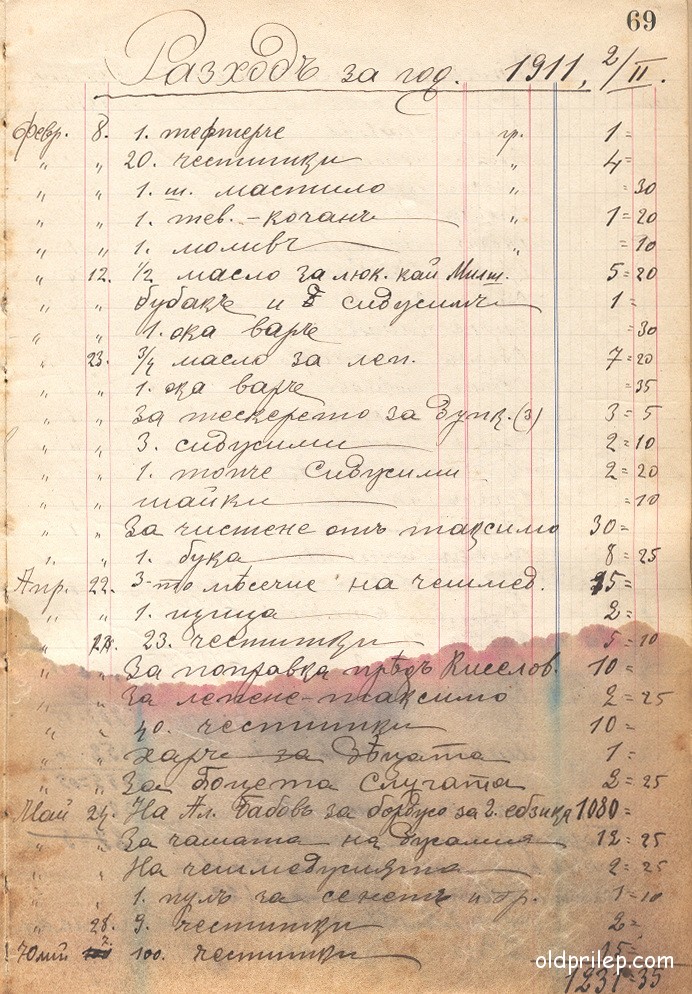 69
Разходъ за год. 1911, 2/II.
февр. 8. 1. тефтерче гр. 1=
" " 20. честитки " 4=
" " 1. ш. мастило " =30
" " 1. тев.-кочанъ " 1=20
" " 1. моливъ " =10
" 12. 1/2 масло за люк. кай Милш. 5=20
" " бубакъ и сидусимъ 1=
" " 1. ока варъ =30
" 23. 3/4 масло за леп. 7=20
" " 1. ока варъ =35
" " за тескерето за (3) 3=5
" " 3. сидусими 2=10
" " 1. топче сидусими 2=20
" " шайки =10
" " За чистене отъ таксимо 30=
" " 1. бука 8=25
Апр. 22. 3-то мѣсечие на чешмед. 15=
" " 1. 2=
" 23. честитки 5=10
" За поправка прѣдъ Киселов. 10=
" За лепене-таксимо 2=25
" " 40. честитки 10=
" " харчъ за 1=
" " За Боцета слугата 2=25
Май 24. На Ал. Бабовъ за за 2. 1080=
" " За чашата на 12=25
" " На чешмедусията 2=25
" " 1. пулъ за сенетъ и др. 1=10
" 28. 9. честитки 2=
Юлий 2. 100. честитки 25=
1231=35
oldprilep.com